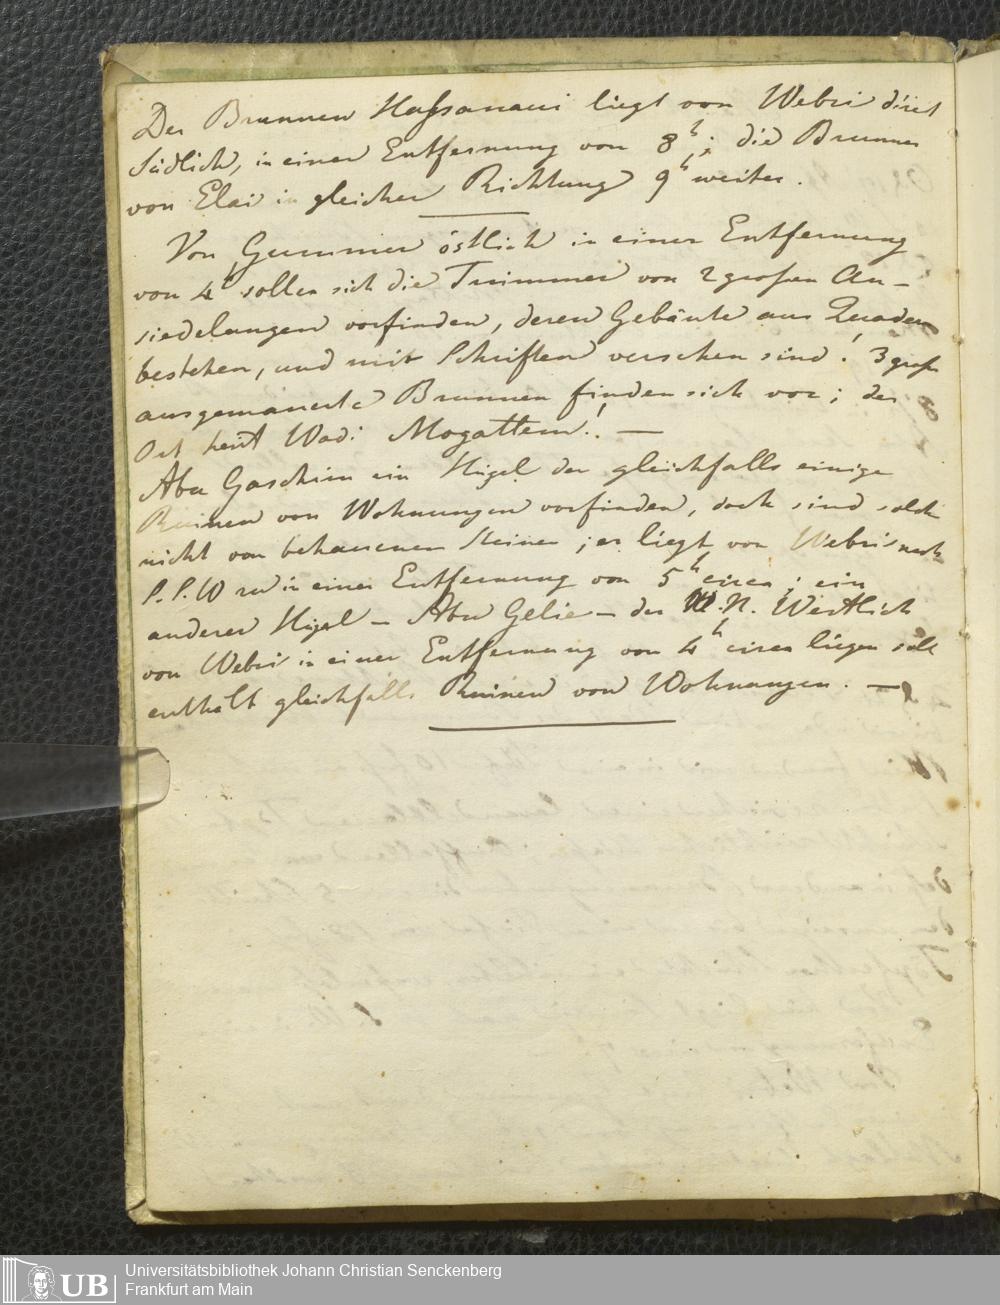 Der Brunnen Haßanaui liegt von Webri direct
südlich, in einer Entfernung von 8 h; die Brunnen
von Elai in gleicher Richtung 9 h weiter.
Von Gummer östlich in einer Entfernung
von 4 h sollen sich die Trümmer von 2 großen An-
siedelungen vorfinden, deren Gebäute aus Quadern
bestehen, und mit Schriften versehen sind! 3 große
ausgemauerte Brunnen finden sich vor; der
Ort heißt Wadi Mogattem! —
Abu Gaschim ein Hügel der gleichfalls einige
Ruinen von Wohnungen vorfinden, doch sind solche
nicht von behauenen Steinen; er liegt von Webri nach
S.S.W in einer Entfernung von 5 h circa; ein
anderer Hügel — Abu Gelie — der N. Westlich
von Webri in einer Entfernung von 4 h circa liegen soll
enthält gleichfalls Ruinen von Wohnungen. —
UB
Universitätsbibliothek Johann Christian Senckenberg
Frankfurt am Main